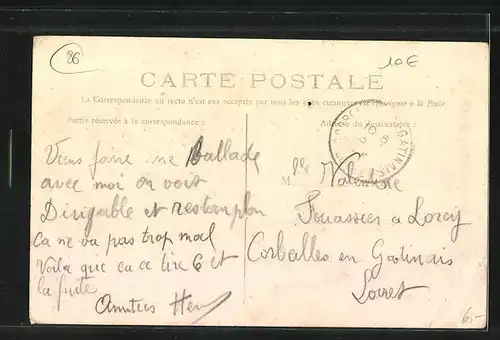 86
10 €
CARTE POSTALE
La Correspondance au recto n'est pas acceptée par tous les pays étrangers (Se renseigner à la Poste
Partie réservée à la correspondance :
Adresse du Destinataire :
CORBEILLES GATINAIS
Viens faire une ballade
avec moi on voit
Dirigable et
ca ne va pas trop mal
Voila que ca ce tire 6 et
la fuite
Amities Henr
M elle Valentine
a Lorcy
Corbeilles en Gatinais
Loiret
65-